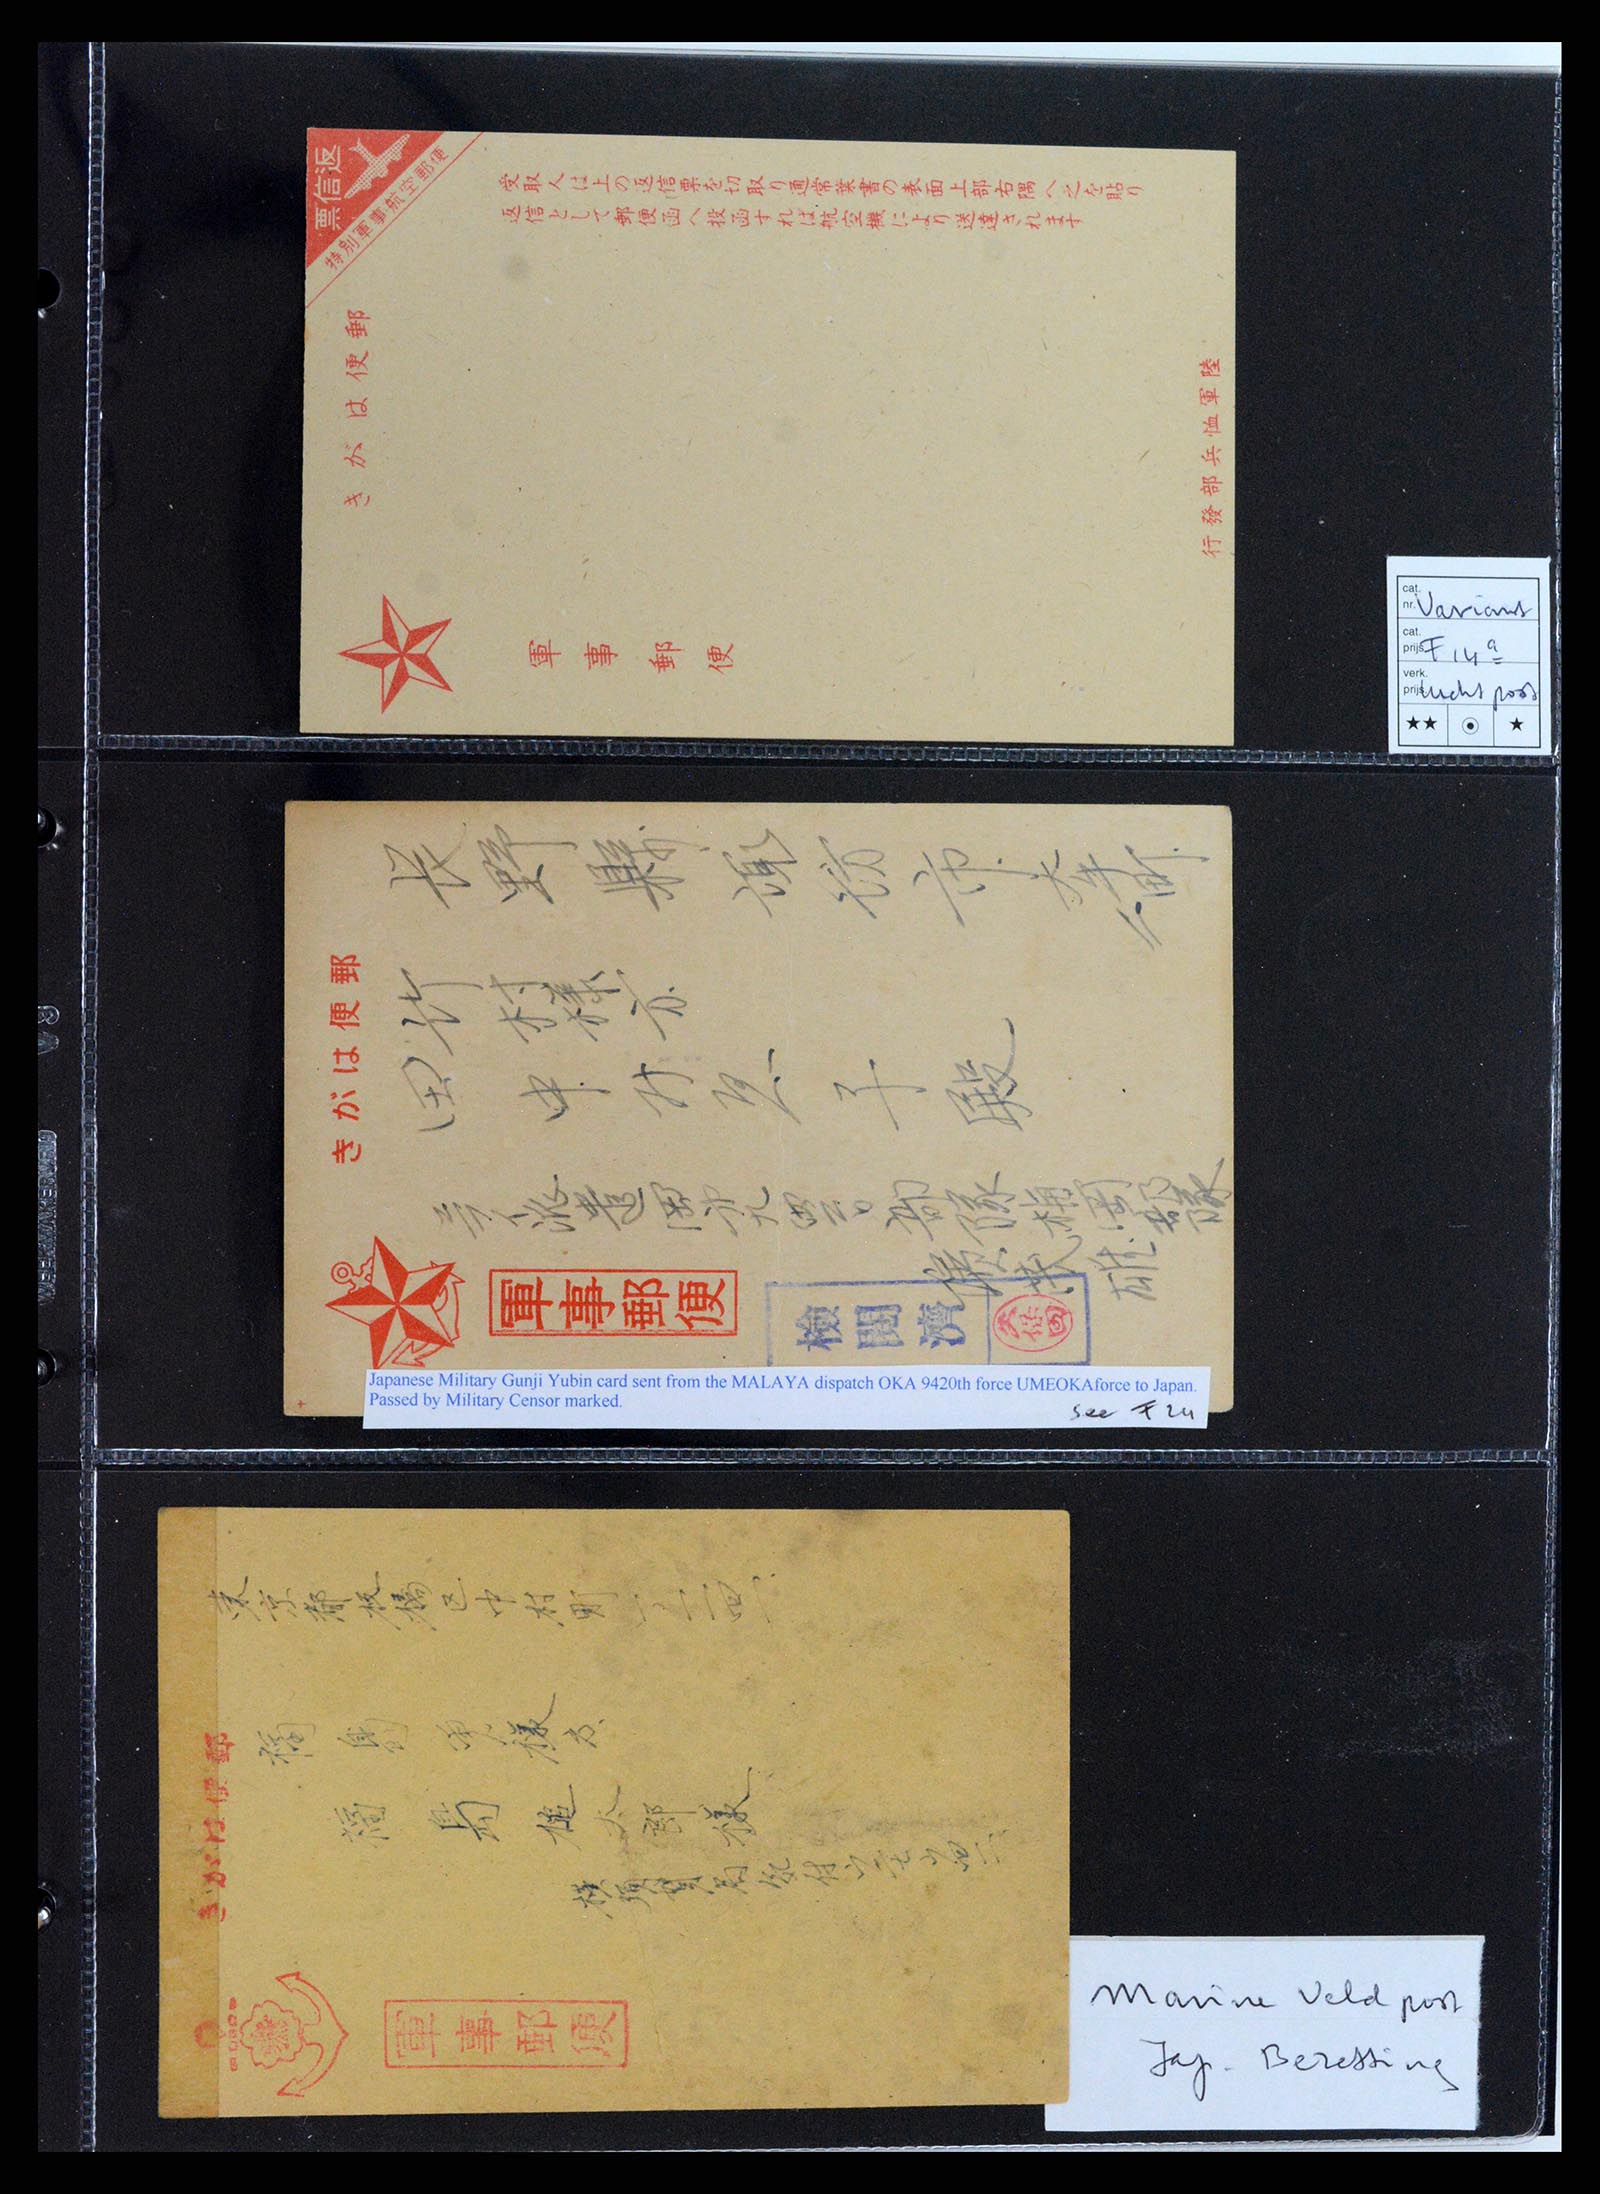 返信票
特別軍事航空郵便
受取人は上の返信票を切取り通常葉書の表面上部右隅へ之を貼り
返信として郵便函へ投函すれば航空機により送達されます
郵便はがき
軍事郵便
陸軍恤兵部發行
cat. nr. Variant
cat. prijs F 14a
verk. prijs Lucht post
★★ ★
長野縣諏訪市大手町
竹村様方
田中 子殿
郵便はがき
馬来派遣岡九四二〇部隊梅岡部隊
軍事郵便
檢閲濟
Japanese Military Gunji Yubin card sent from the MALAYA dispatch OKA 9420th force UMEOKAforce to Japan.
Passed by Military Censor marked.
see F 24
東京都板橋区中村町
郵便はがき
福島 様方
福島 太郎様
横須賀
軍事郵便
Marine Veldpost
Jap. Bezetting